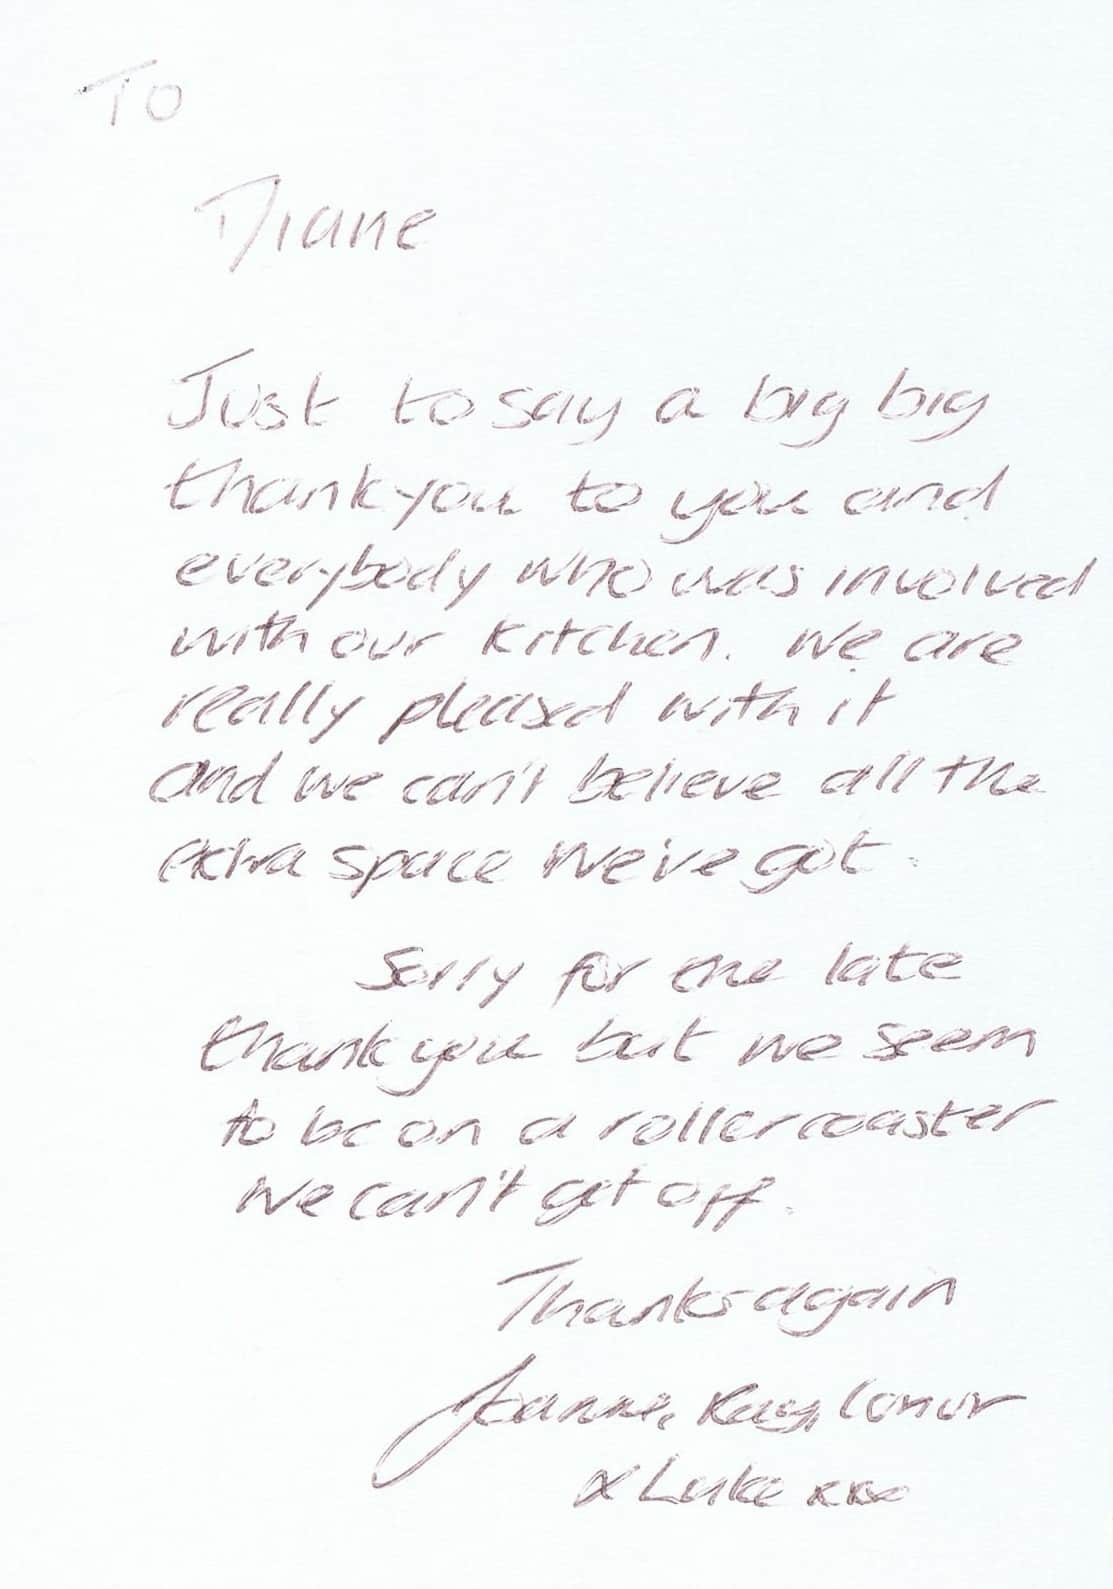 To
Diane
Just to say a big big
thankyou to you and
everybody who was involved
with our kitchen. We are
really pleased with it
and we can't believe all the
extra space we've got.
Sorry for the late
thank you but we seem
to be on a rollercoaster
we can't get off.
Thanks again
Joanne, Conor
& Luke